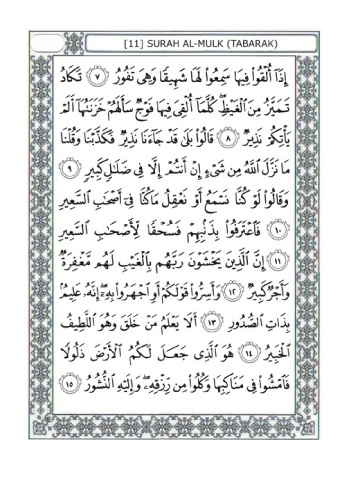 [11] SURAH AL-MULK (TABARAK)
إِذَآ أُلْقُوا۟ فِيهَا سَمِعُوا۟ لَهَا شَهِيقًا وَهِىَ تَفُورُ ٧ تَكَادُ
تَمَيَّزُ مِنَ ٱلْغَيْظِ ۖ كُلَّمَآ أُلْقِىَ فِيهَا فَوْجٌ سَأَلَهُمْ خَزَنَتُهَآ أَلَمْ
يَأْتِكُمْ نَذِيرٌ ٨ قَالُوا۟ بَلَىٰ قَدْ جَآءَنَا نَذِيرٌ فَكَذَّبْنَا وَقُلْنَا
مَا نَزَّلَ ٱللَّهُ مِن شَىْءٍ إِنْ أَنتُمْ إِلَّا فِى ضَلَٰلٍ كَبِيرٍ ٩
وَقَالُوا۟ لَوْ كُنَّا نَسْمَعُ أَوْ نَعْقِلُ مَا كُنَّا فِىٓ أَصْحَٰبِ ٱلسَّعِيرِ
١٠ فَٱعْتَرَفُوا۟ بِذَنۢبِهِمْ فَسُحْقًا لِّأَصْحَٰبِ ٱلسَّعِيرِ
١١ إِنَّ ٱلَّذِينَ يَخْشَوْنَ رَبَّهُم بِٱلْغَيْبِ لَهُم مَّغْفِرَةٌ
وَأَجْرٌ كَبِيرٌ ١٢ وَأَسِرُّوا۟ قَوْلَكُمْ أَوِ ٱجْهَرُوا۟ بِهِۦٓ ۖ إِنَّهُۥ عَلِيمٌۢ
بِذَاتِ ٱلصُّدُورِ ١٣ أَلَا يَعْلَمُ مَنْ خَلَقَ وَهُوَ ٱللَّطِيفُ
ٱلْخَبِيرُ ١٤ هُوَ ٱلَّذِى جَعَلَ لَكُمُ ٱلْأَرْضَ ذَلُولًا
فَٱمْشُوا۟ فِى مَنَاكِبِهَا وَكُلُوا۟ مِن رِّزْقِهِۦ ۖ وَإِلَيْهِ ٱلنُّشُورُ ١٥